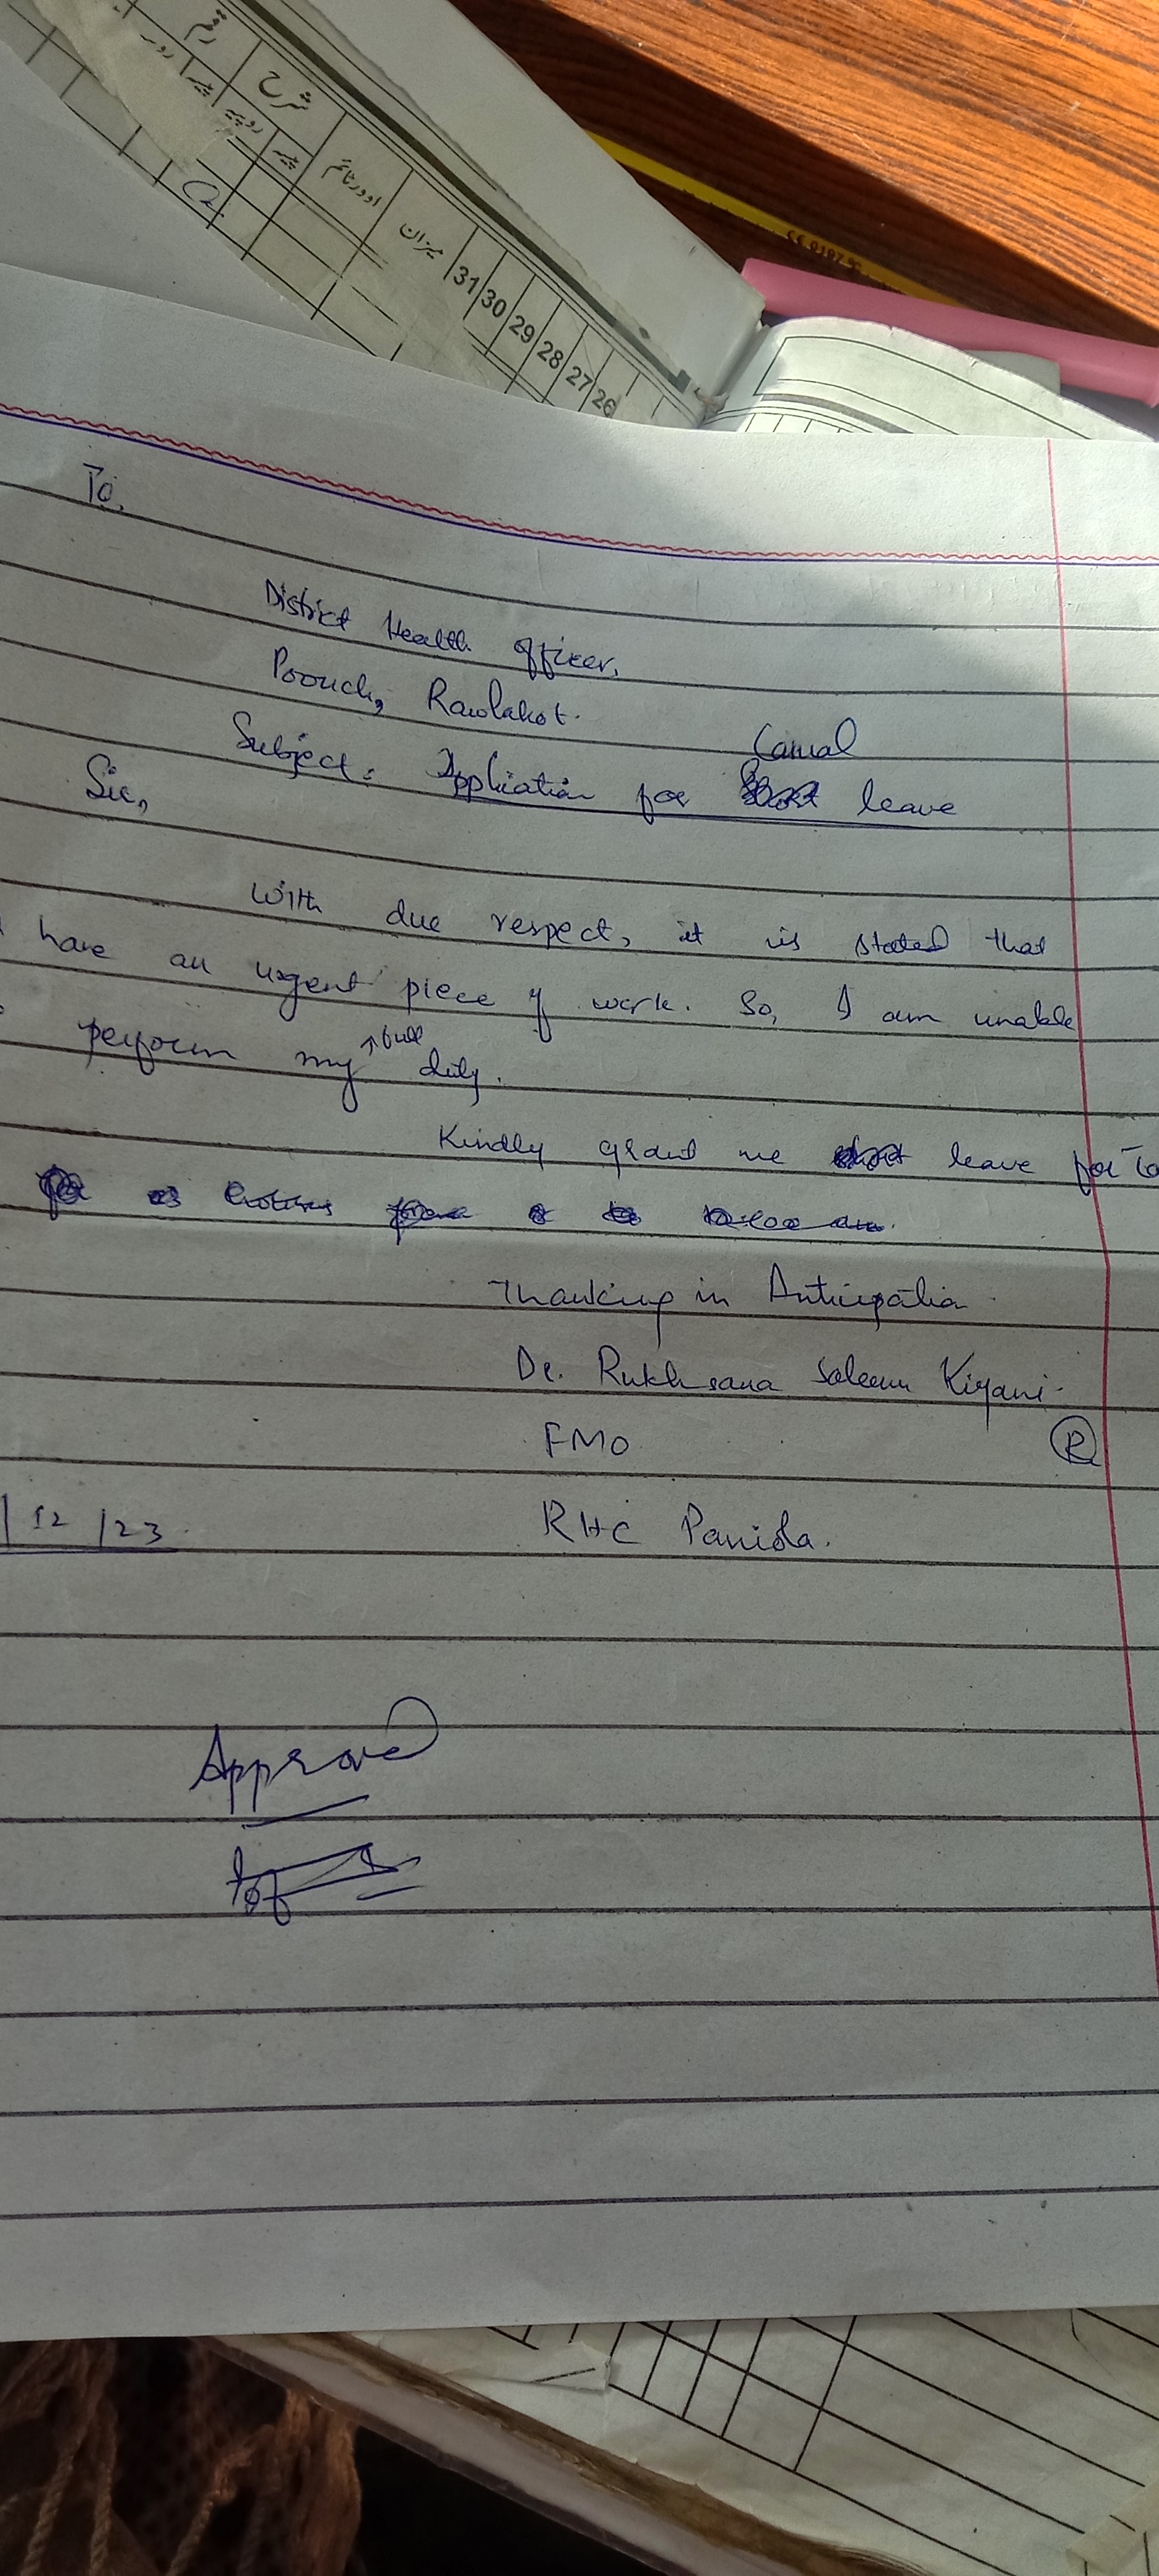 رقم
شرح
روپیہ
پیسہ
روپیہ
پیسہ
اوورٹائم
میزان
31 30 29 28 27 26
To,
District Health Officer,
Poonch, Rawlakot.
Casual
Subject: Application for Short leave
Sir,
With due respect, it is stated that
have an urgent piece of work. So, I am unable
perform my full duty.
Kindly grant me short leave for To
Thanking in Anticipation
Dr. Rukhsana Saleem Kiyani.
FMO
R
/12/23.
RHC Paniola.
Approved